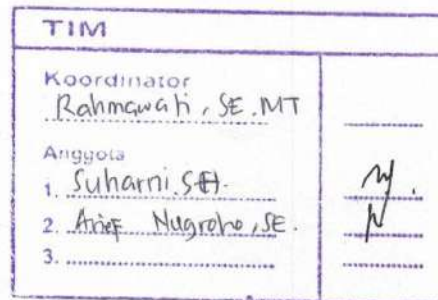 TIM
Koordinator
Rahmawati, SE.MT
Anggota
1. Suharni.SH.
2. Arief Nugroho, SE.
3.